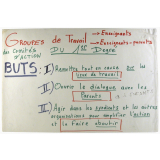 GROUPES de Travail → Enseignants
des COMITÉS → Enseignants-parents
d'ACTION DU 1er Degré
BUTS: I) Remettre tout en cause sur les
lieux de travail
II) Ouvrir le dialogue avec les
Parents
III) Agir dans les syndicats et les autres
organisations pour amplifier l'action
et la faire aboutir